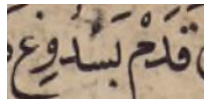 قَدَمْ بَسْدَوِغ